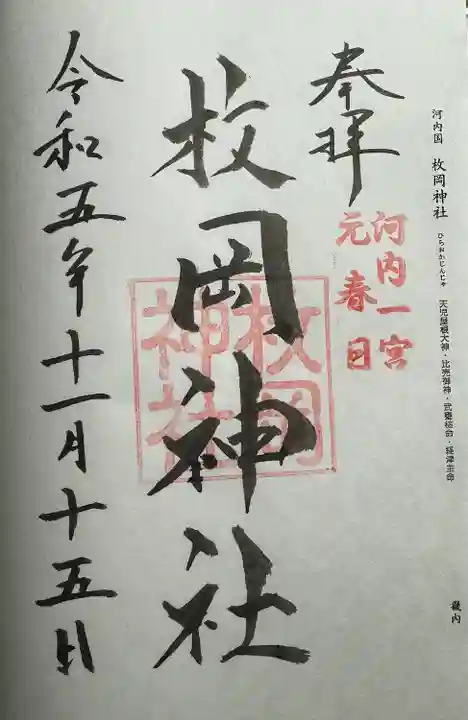 河内国 枚岡神社 ひらおかじんじゃ 天児屋根大神・比売御神・武甕槌命・経津主命
畿内
奉拝
河内一宮
元春日
枚岡神社
枚岡
神社
令和五年十一月十五日